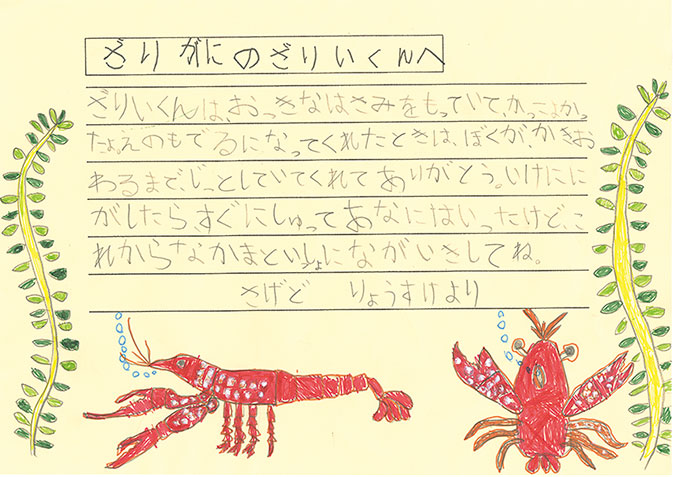 ざりがにのざりいくんへ
ざりいくんは、おっきなはさみをもっていて、かっこよかっ
たよ。えのもでるになってくれたときは、ぼくが、かきお
わるまで、じっとしていてくれてありがとう。いけにに
がしたら、すぐにしゅってあなにはいったけど、こ
れからなかまといっしょにながいきしてね。
さげど りょうすけより